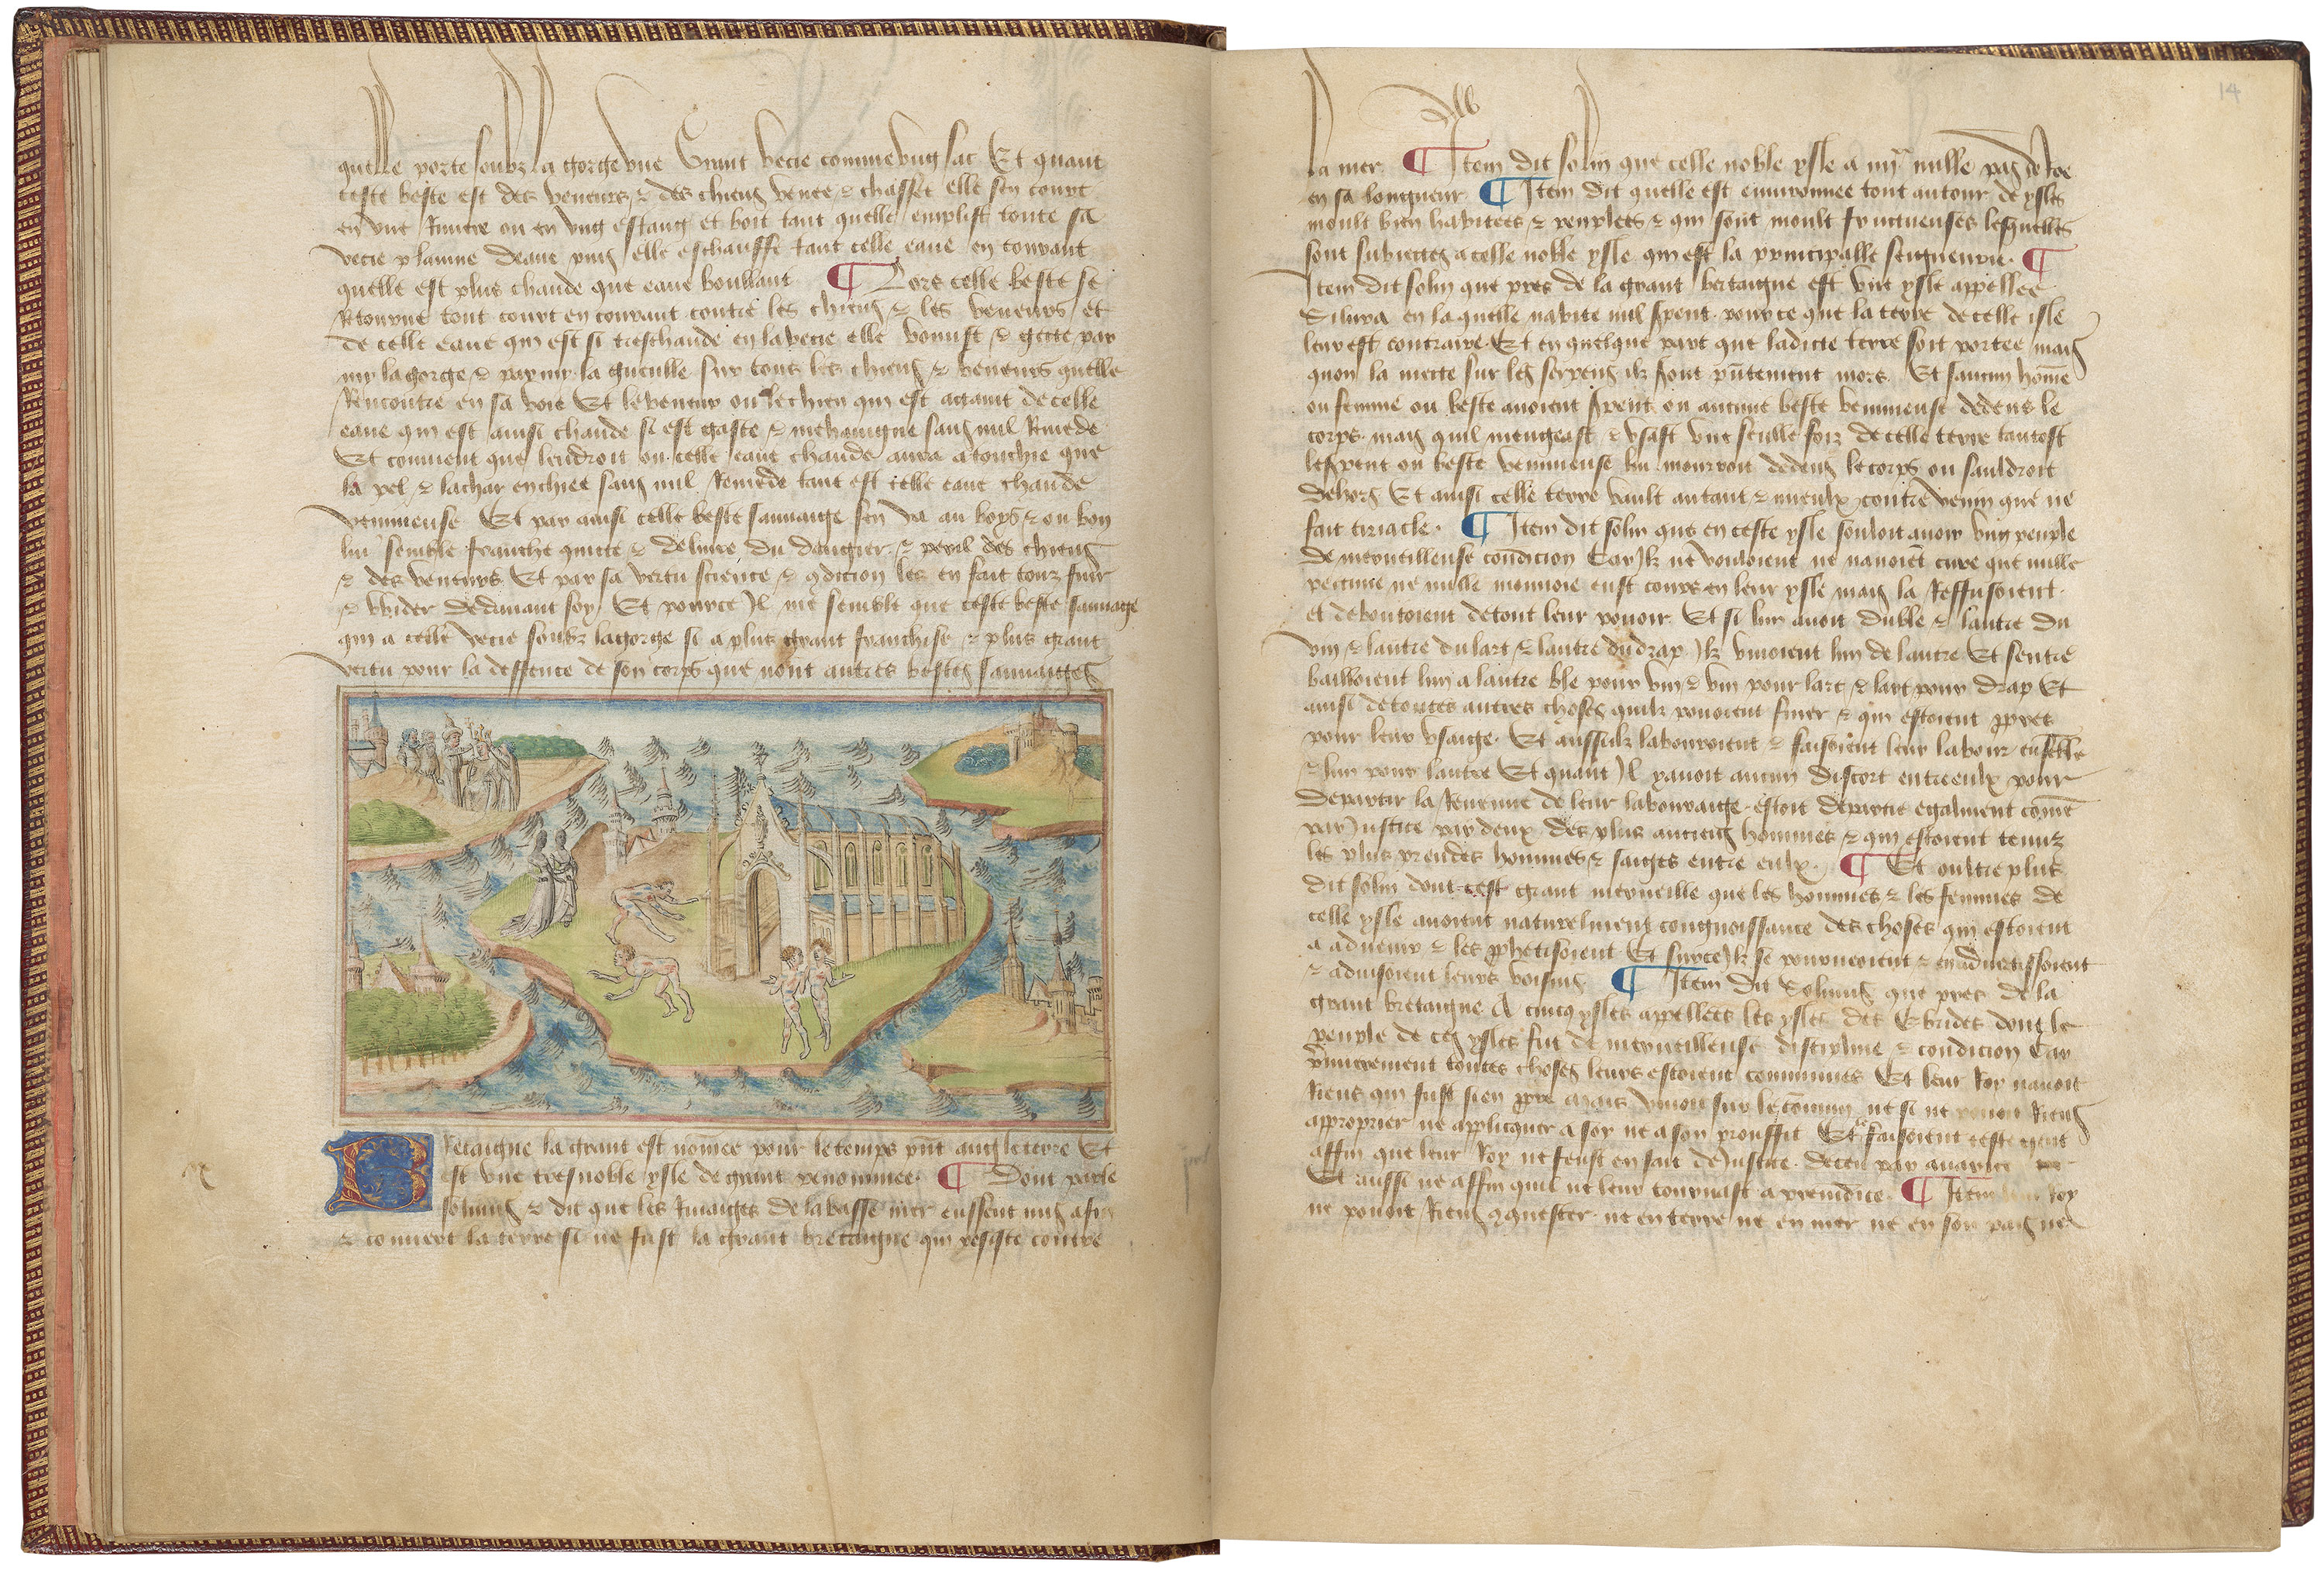 quelle porte soubz la gorge une Grant vecie comme ung sac Et quant
ceste beste est des veneurs & des chiens venee & chassee elle sen court
en une Riviere ou en ung estang et boit tant quelle emplist toute sa
vecie plaine deaue puis elle eschauffe tant celle eaue en courant
quelle est plus chaude que eaue boullant ¶ Lors celle beste se
Retourne tout court en courant contre les chiens & les veneurs et
de celle eaue qui est si treschaude en la vecie elle vomist & gecte par
my la gorge & par my la gueulle sur tous les chiens & veneurs quelle
Rencontre en sa voie Et le veneur ou le chien qui est actaint de celle
eaue qui est ainsi chaude si est gaste & mehaingne sans nul Remede
Et convient que lendroit ou celle eaue chaude aura atouchie que
la pel & la char en chiee sans nul Remede tant est celle eaue chaude
venimeuse Et par ainsi celle beste sauvaige sen va au boys & ou bon
lui semble franche quicte & delivre du dangier & peril des chiens
& des veneurs Et par sa vertu science & condicion les en fait touz fuir
& vuider dedavant soy Et pource Il me semble que ceste beste sauvage
qui a celle vecie soubz la gorge si a plus grant franchise & plus grant
vertu pour la deffence de son corps que nont autres bestes sauvaiges
Bretaigne la grant est nomee pour le temps p̄nt angleterre Et
est une tresnoble ysle de grant renommee ¶ Dont parle
solinus & dit que les Rivaiges de la basse mer eussent mis a fin
& couvert la terre si ne fust la grant bretaigne qui resiste contre
14
la mer ¶ Item dit solin que celle noble ysle a mille pas
en sa longueur ¶ Item dit quelle est environnee tout autour de ysles
moult bien habitees & peuplees & qui sont moult fructueuses lesquelles
sont subiectes a celle noble ysle qui est la principalle seigneurie ¶
Item dit solin que pres de la grant bertaigne est une ysle appellee
Silura en laquelle habite nul sp̄ent pource que la terre de celle isle
leur est contraire Et en quelque part que ladicte terre soit portee mais
quon la mecte sur les serpens ilz sont p̄ntement mors Et saucun hom̄e
ou femme ou beste avoient sp̄ent ou aucune beste venimeuse dedens le
corps mais quil mengeast & usast une seulle foiz de celle terre tantost
le sp̄ent ou beste venimeuse lui mourroit dedens le corps ou sauldroit
dehors Et ainsi celle terre vault autant & mieulx contre venin que ne
fait tiriacle ¶ Item dit solin que en ceste ysle souloit avoir ung peuple
de merveilleuse condicion Car Ilz ne vouloient ne navoiēt cure que nulle
pecune ne nulle monnoie eust cours en leur ysle mais la Reffusoient
et deboutoient de tout leur povoir Et si lun avoit du ble & lautre du
vin & lautre du lart & lautre du drap Ilz vivoient lun de lautre Et sentre
bailloient lun a lautre ble pour vin & vin pour lart & lart pour drap Et
ainsi de toutes autres choses quilz povoient finer & qui estoient p̄pres
pour leur usaige Et aussi ilz labouroient & faisoient leur labour ensēble
& lun pour lautre Et quant Il yavoit aucun discort entre eulx pour
departir la Revenue de leur labouraige estoit departie egalment com̄e
par Justice par deux des plus anciens hommes & qui estoient tenuz
les plus preudes hommes & saiges entre eulx ¶ Et oultre plus
dit solin dont cest grant merveille que les hommes & les femmes de
celle ysle avoient naturelment congnoissance des choses qui estoient
a advenir & les p̄phetisoient Et surce Ilz se pourveoient & en advertissoient
& advisoient leurs voisins ¶ Item dit Solinus que pres de la
grant bretaigne A cincq ysles appellees les ysles des Ebrides dont le
peuple de ces ysles fut de merveilleuse discipline & condicion Car
p̄mierement toutes choses leurs estoient communes Et leur Roy navoit
Riens qui fust sien p̄pre mais vivoit sur le com̄un ne si ne povoit Riens
approprier ne applicquer a soy ne a son prouffit Et le faisoient ceste gent
affin que leur Roy ne feust en fait de Justice deceu par avarice
Et aussi ne affin quil ne leur tournast a preiudice ¶ Item Roy
ne povoit Riens conquester ne en terre ne en mer ne en son pais ne